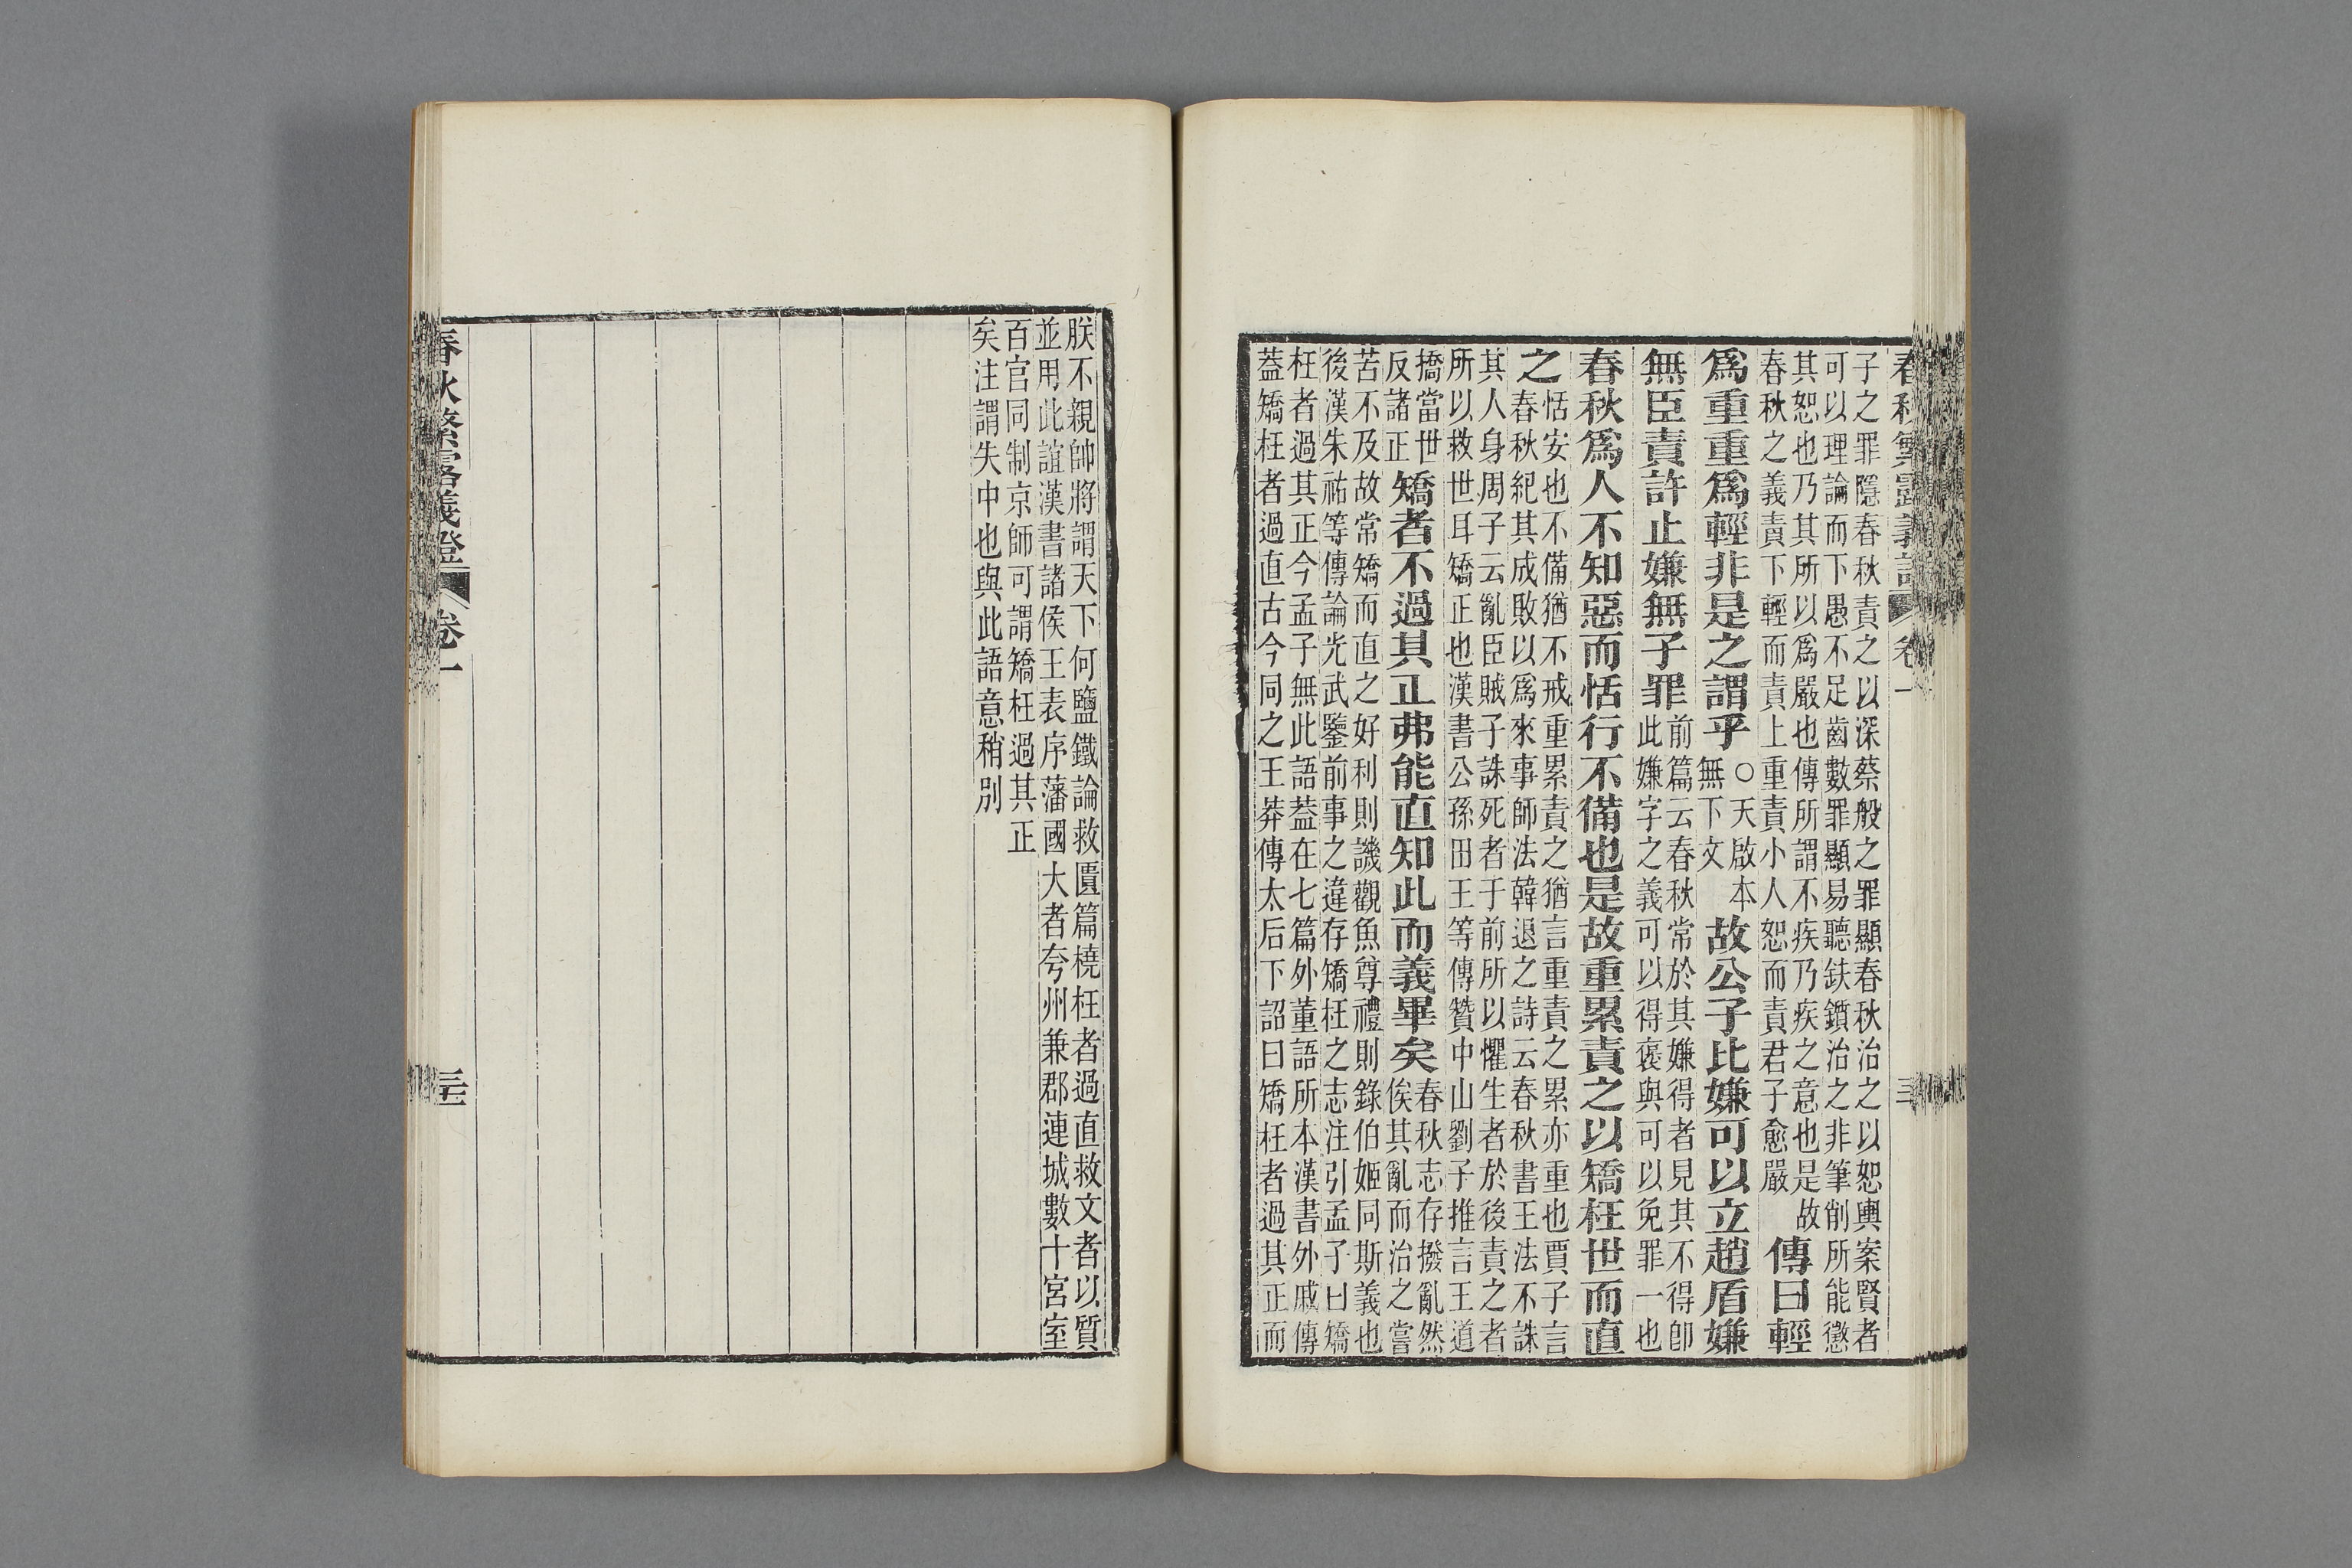 春秋繁露義證 卷一 三
子之罪隱春秋責之以深蔡般之罪顯春秋治之以恕輿案賢者
可以理論而下愚不足齒數罪顯易聽鈇鑕治之非筆削所能懲
其恕也乃其所以爲嚴也傳所謂不疾乃疾之意也是故
春秋之義責下輕而責上重責小人恕而責君子愈嚴
傳曰輕
爲重重爲輕非是之謂乎
○天啟本
無下文
故公子比嫌可以立趙盾嫌
無臣責許止嫌無子罪
前篇云春秋常於其嫌得者見其不得卽
此嫌字之義可以得褒與可以免罪一也
春秋爲人不知惡而恬行不備也是故重累責之以矯枉世而直
之
恬安也不備猶不戒重累責之猶言重責之累亦重也賈子言
春秋紀其成敗以爲來事師法韓退之詩云春秋書王法不誅
其人身周子云亂臣賊子誅死者于前所以懼生者於後責之者
所以救世耳矯正也漢書公孫田王等傳贊中山劉子推言王道
撟當世
反諸正
矯者不過其正弗能直知此而義畢矣
春秋志存撥亂然
俟其亂而治之嘗
苦不及故常矯而直之好利則譏觀魚尊禮則錄伯姬同斯義也
後漢朱祐等傳論光武鑒前事之違存矯枉之志注引孟子曰矯
枉者過其正今孟子無此語葢在七篇外董語所本漢書外戚傳
葢矯枉者過直古今同之王莽傳太后下詔曰矯枉者過其正而
朕不親帥將謂天下何鹽鐵論救匱篇橈枉者過直救文者以質
並用此誼漢書諸侯王表序藩國大者夸州兼郡連城數十宮室
百官同制京師可謂矯枉過其正
矣注謂失中也與此語意稍別
春秋繁露義證 卷一